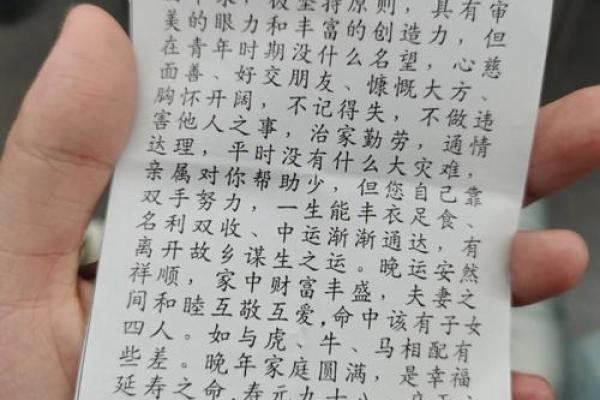 极坚持原则，具有审
美的眼力和丰富的创造力，但
在青年时期没什么名望，心慈
面善、好交朋友、慷慨大方、
胸怀开阔，不记得失，不做违
害他人之事，治家勤劳，通情
达理，平时没有什么大灾难，
亲属对你帮助少，但您自己靠
双手努力，一生能丰衣足食、
名利双收、中运渐渐通达，有
离开故乡谋生之运。晚运安然
祥顺，家中财富丰盛，夫妻之
间和睦互敬互爱，命中该有子女
四人。如与虎、牛、马相配有
些差。晚年家庭圆满，是幸福
延寿之命，寿元九十